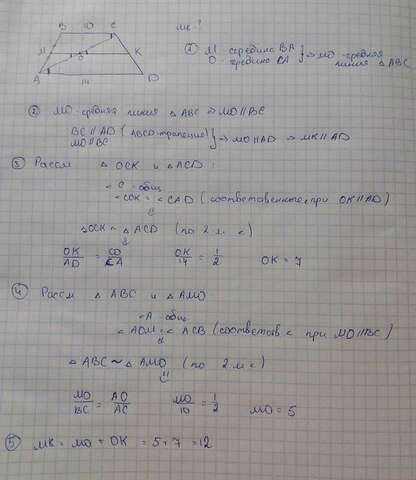 B 10 C
MK - ?
M O K
A 14 D
① M - середина BA
O - середина CA } ⇒ MO - средняя линия △ABC
② MO - средняя линия △ABC ⇒ MO || BC
BC || AD (ABCD - трапеция)
MO || BC } ⇒ MO || AD ⇒ MK || AD
③ Рассм △ OCK и △ ACD :
∠ C - общ
∠ COK = ∠ CAD (соответственные, при OK || AD)
⇓
△ OCK ~ △ ACD (по 2 м ∠)
⇓
OK/AD = CO/CA OK/14 = 1/2 OK = 7
④ Рассм △ ABC и △ AMO
∠ A - общ
∠ AOM = ∠ ACB (соответств ∠ при MO || BC)
⇓
△ ABC ~ △ AMO (по 2 м ∠)
⇓
MO/BC = AO/AC MO/10 = 1/2 MO = 5
⑤ MK = MO + OK = 5 + 7 = 12